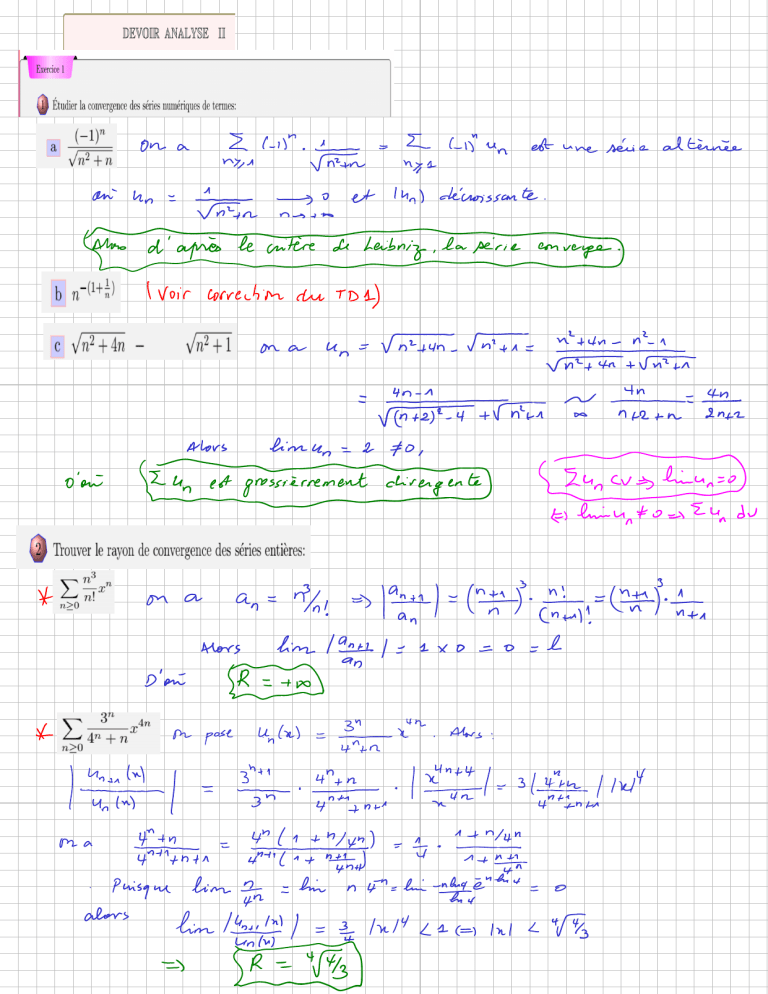 DEVOIR ANALYSE II
Exercice 1
1 Étudier la convergence des séries numériques de termes:
a (-1)^n / √(n²+n) on a Σ_{n≥1} (-1)^n · 1/√(n²+n) = Σ_{n≥1} (-1)^n u_n est une série altérnée
où u_n = 1/√(n²+n) → 0 n→+∞ et (u_n) décroissante.
Alors d'après le critère de Leibniz, la série converge.
b n^{-(1+1/n)} (Voir correction du TD1)
c √(n²+4n) - √(n²+1) on a u_n = √(n²+4n) - √(n²+1) = (n²+4n-n²-1) / (√(n²+4n) + √(n²+1))
= (4n-1) / (√((n+2)²-4) + √(n²+1)) ~_∞ 4n/(n+2+n) = 4n/(2n+2)
Alors lim u_n = 2 ≠ 0,
D'où Σ u_n est grossièrrement divergente
Σ u_n CV ⇒ lim u_n = 0
⇔ lim u_n ≠ 0 ⇒ Σ u_n dv
2 Trouver le rayon de convergence des séries entières:
* Σ_{n≥0} n³/n! x^n on a a_n = n³/n! ⇒ |a_{n+1}/a_n| = ((n+1)/n)³ · n!/(n+1)! = ((n+1)/n)³ · 1/(n+1)
Alors lim |a_{n+1}/a_n| = 1 × 0 = 0 = l
D'où R = +∞
* Σ_{n≥0} 3^n/(4^n+n) x^{4n} on pose u_n(x) = 3^n/(4^n+n) x^{4n}. Alors:
|u_{n+1}(x)/u_n(x)| = 3^{n+1}/3^n · (4^n+n)/(4^{n+1}+n+1) · |x^{4n+4}/x^{4n}| = 3 |(4^n+n)/(4^{n+1}+n+1)| |x|^4
on a (4^n+n)/(4^{n+1}+n+1) = 4^n(1+n/4^n) / 4^{n+1}(1+(n+1)/4^{n+1}) = 1/4 · (1+n/4^n)/(1+(n+1)/4^n)
Puisque lim n/4^n = lim n 4^{-n} = lim (-n ln4 e^{-n ln4})/ln4 = 0
alors lim |u_{n+1}(x)/u_n(x)| = 3/4 |x|^4 < 1 ⇔ |x| < ⁴√(4/3)
⇒ R = ⁴√(4/3)